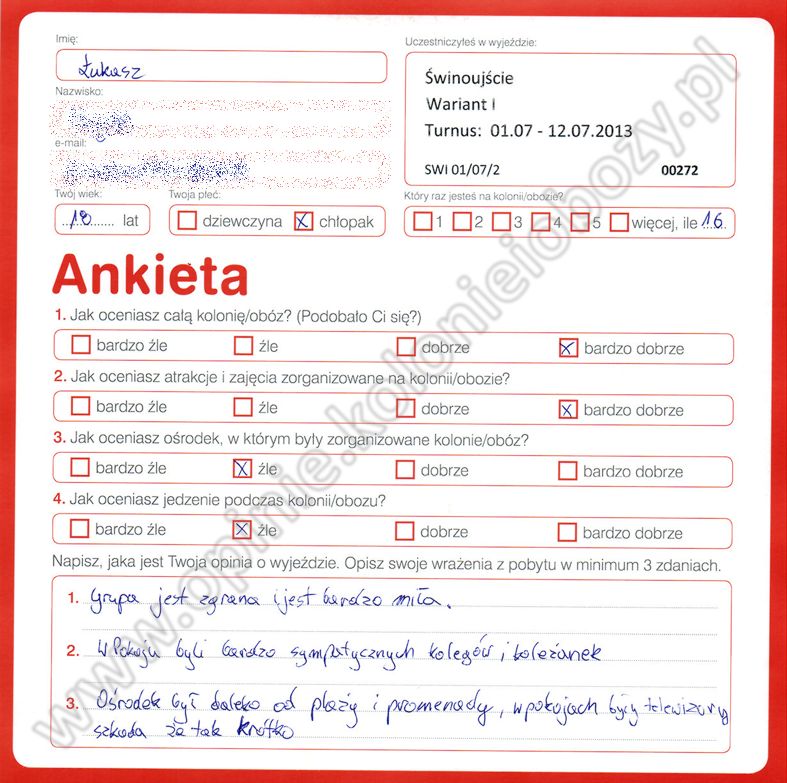 Imię:
Łukasz
Uczestniczyłeś w wyjeździe:
Świnoujście
Wariant I
Turnus: 01.07 - 12.07.2013
SWI 01/07/2 00272
Nazwisko:
e-mail:
Twój wiek:
18 lat
Twoja płeć:
dziewczyna X chłopak
Który raz jesteś na kolonii/obozie?
1 2 3 4 5 więcej, ile 16
Ankieta
1. Jak oceniasz całą kolonię/obóz? (Podobało Ci się?)
bardzo źle źle dobrze X bardzo dobrze
2. Jak oceniasz atrakcje i zajęcia zorganizowane na kolonii/obozie?
bardzo źle źle dobrze X bardzo dobrze
3. Jak oceniasz ośrodek, w którym były zorganizowane kolonie/obóz?
bardzo źle X źle dobrze bardzo dobrze
4. Jak oceniasz jedzenie podczas kolonii/obozu?
bardzo źle X źle dobrze bardzo dobrze
Napisz, jaka jest Twoja opinia o wyjeździe. Opisz swoje wrażenia z pobytu w minimum 3 zdaniach.
1. Grupa jest zgrana i jest bardzo miła.
2. W Pokoju byli bardzo sympatycznych kolegów i koleżanek
3. Ośrodek był daleko od plaży i promenady, w pokojach były telewizory
szkoda że tak krótko
www.opinie.kolonieiobozy.pl